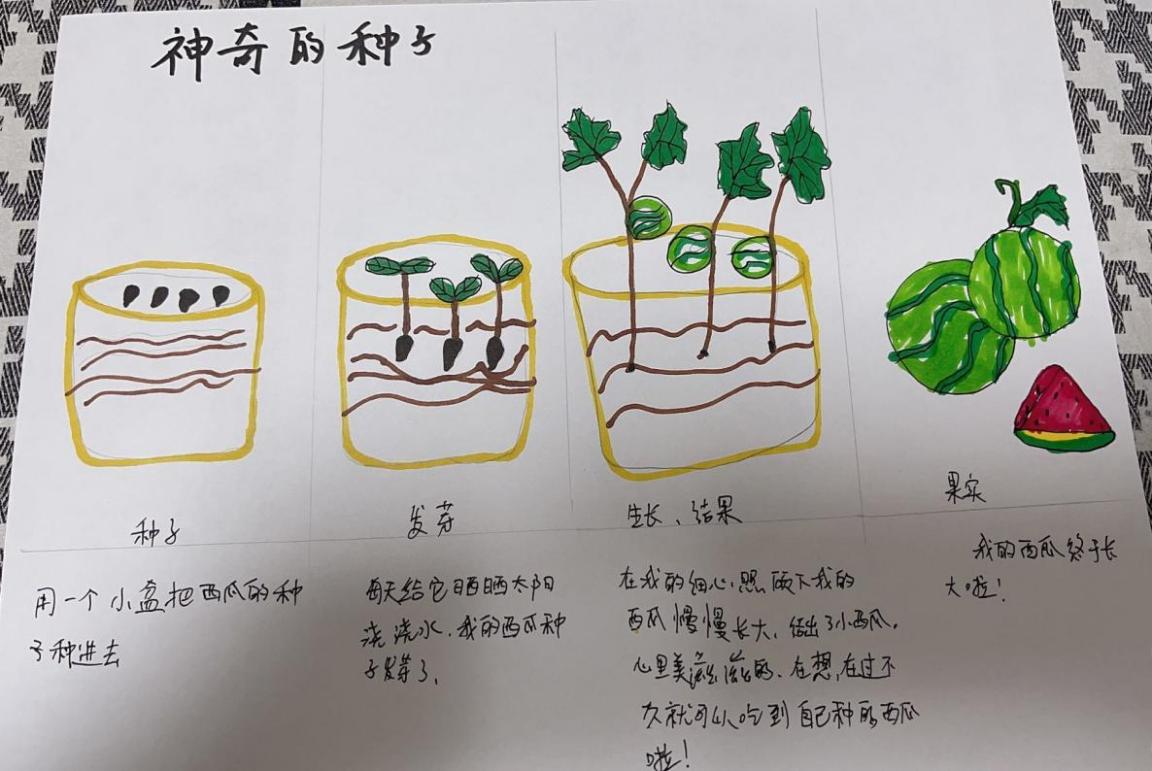 神奇的种子
种子
发芽
生长、结果
果实
用一个小盆把西瓜的种
子种进去
每天给它晒晒太阳
浇浇水.我的西瓜种
子发芽了、
在我的细心照顾下我的
西瓜慢慢长大、结出了小西瓜.
心里美滋滋的、在想,在过不
久就可以吃到自己种的西瓜
啦!
我的西瓜终于长
大啦!